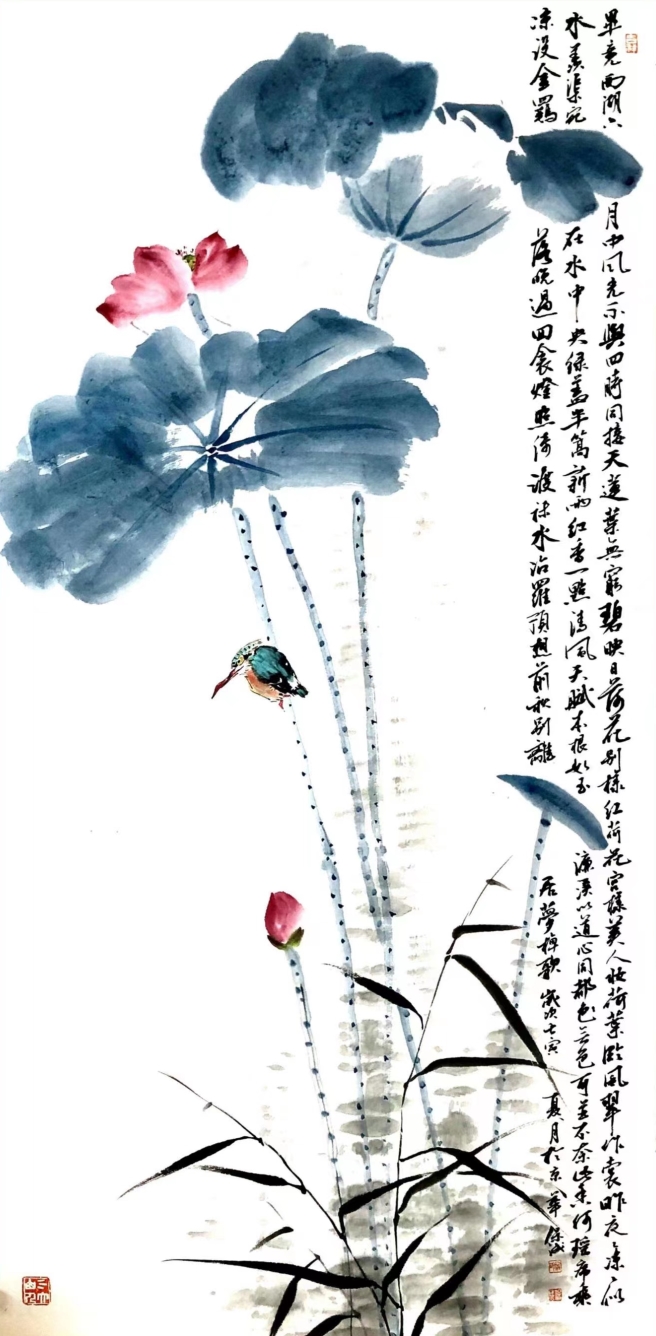 畢竟西湖六月中風光不與四時同接天蓮葉無窮碧映日荷花別樣紅荷花宮樣美人妝荷葉臨風翠作裳昨夜涼似
水羨渠宛在水中央綠蓋半篙新雨紅香一點清風天賦本根如玉濂溪以道心同都色無色可並不奈此香何瑤席乘
涼設金羈落晚過回衾燈照綺渡袜水沾羅預想前秋別離
居夢棹歌歲次壬寅夏月於京華